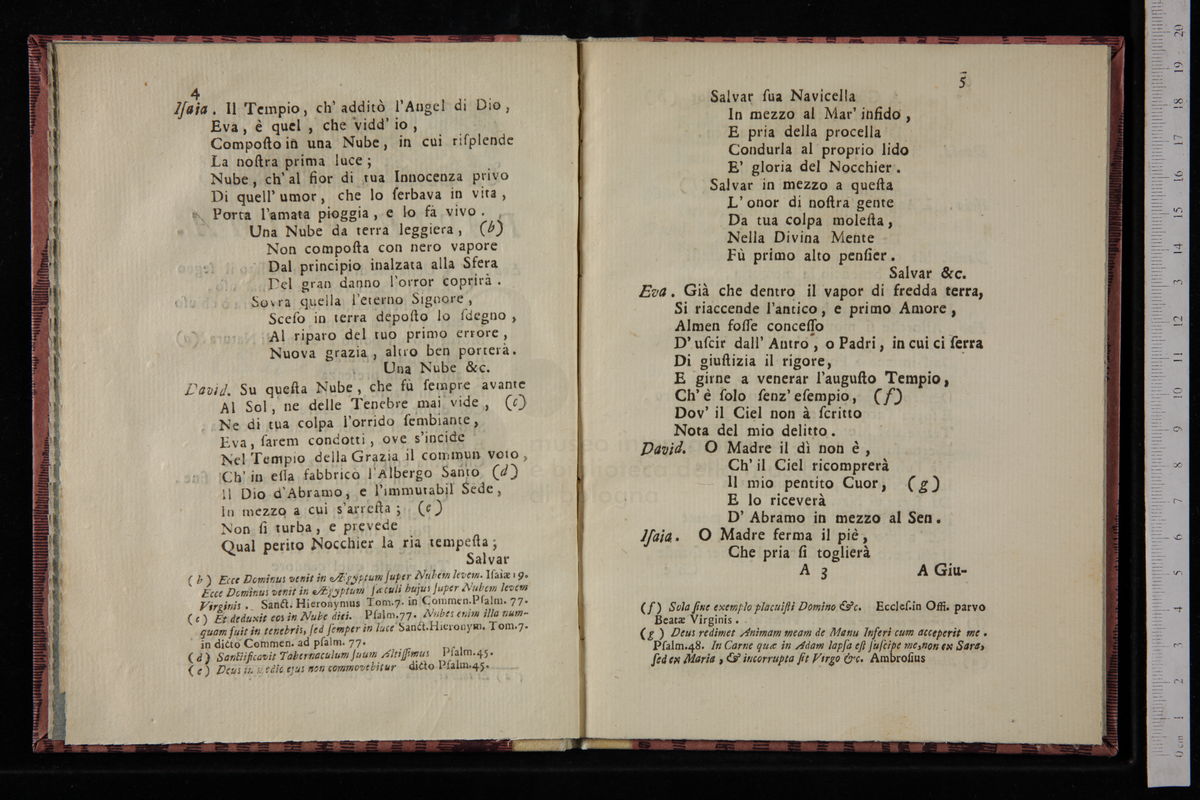 4
Iſaia. Il Tempio, ch' additò l'Angel di Dio,
Eva, è quel, che vidd' io,
Compoſto in una Nube, in cui riſplende
La noſtra prima luce;
Nube, ch' al fior di tua Innocenza privo
Di quell' umor, che lo ſerbava in vita,
Porta l'amata pioggia, e lo fà vivo.
Una Nube da terra leggiera, (b)
Non compoſta con nero vapore
Dal principio inalzata alla Sfera
Del gran danno l'orror coprirà.
Sovra quella l'eterno Signore,
Sceſo in terra depoſto lo ſdegno,
Al riparo del tuo primo errore,
Nuova grazia, altro ben porterà.
Una Nube &c.
David. Su queſta Nube, che fù ſempre avante
Al Sol, ne delle Tenebre mai vide, (c)
Ne di tua colpa l'orrido ſembiante,
Eva, ſarem condotti, ove s'incide
Nel Tempio della Grazia il commun voto,
Ch' in eſſa fabbrico l'Albergo Santo (d)
Il Dio d'Abramo, e l'immutabil Sede,
In mezzo a cui s'arreſta; (e)
Non ſi turba, e prevede
Qual perito Nocchier la ria tempeſta;
Salvar
(b) Ecce Dominus venit in Ægyptum ſuper Nubem levem. Iſaiæ 19.
Ecce Dominus venit in Ægyptum ſæculi hujus ſuper Nubem levem
Virginis. Sanct. Hieronymus Tom.7. in Commen.Pſalm. 77.
(c) Et deduxit eos in Nube diei. Pſalm.77. Nubes enim illa num-
quam fuit in tenebris, ſed ſemper in luce Sanct.Hieronym. Tom.7.
in dicto Commen. ad pſalm. 77.
(d) Sanctificavit Tabernaculum ſuum Altiſſimus Pſalm.45.
(e) Deus in medio ejus non commovebitur dicto Pſalm.45.
5
Salvar ſua Navicella
In mezzo al Mar' infido,
E pria della procella
Condurla al proprio lido
E' gloria del Nocchier.
Salvar in mezzo a queſta
L' onor di noſtra gente
Da tua colpa moleſta,
Nella Divina Mente
Fù primo alto penſier.
Salvar &c.
Eva. Già che dentro il vapor di fredda terra,
Si riaccende l'antico, e primo Amore,
Almen foſſe conceſſo
D' uſcir dall' Antro, o Padri, in cui ci ſerra
Di giuſtizia il rigore,
E girne a venerar l'auguſto Tempio,
Ch' è ſolo ſenz' eſempio, (f)
Dov' il Ciel non à ſcritto
Nota del mio delitto.
David. O Madre il dì non è,
Ch' il Ciel ricomprerà
Il mio pentito Cuor, (g)
E lo riceverà
D' Abramo in mezzo al Sen.
Iſaia. O Madre ferma il piè,
Che pria ſi toglierà
A 3 A Giu-
(f) Sola ſine exemplo placuiſti Domino &c. Eccleſ.in Offi. parvo
Beatæ Virginis.
(g) Deus redimet Animam meam de Manu Inferi cum acceperit me.
Pſalm.48. In Carne quæ in Adam lapſa eſt ſuſcipe me,non ex Sara,
ſed ex Maria, & incorrupta ſit Virgo &c. Ambroſius
museo in
biblioteca de
di bologna